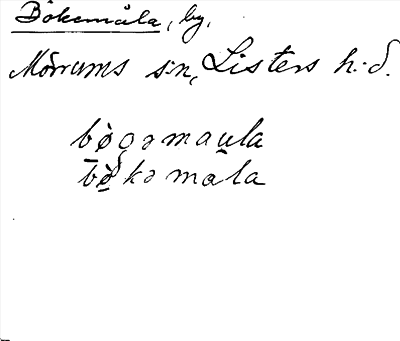 Bökemåla, by.
Mörrums sn, Listers h:d.
bø̀gəmau̲la
bø̲̀kəmala